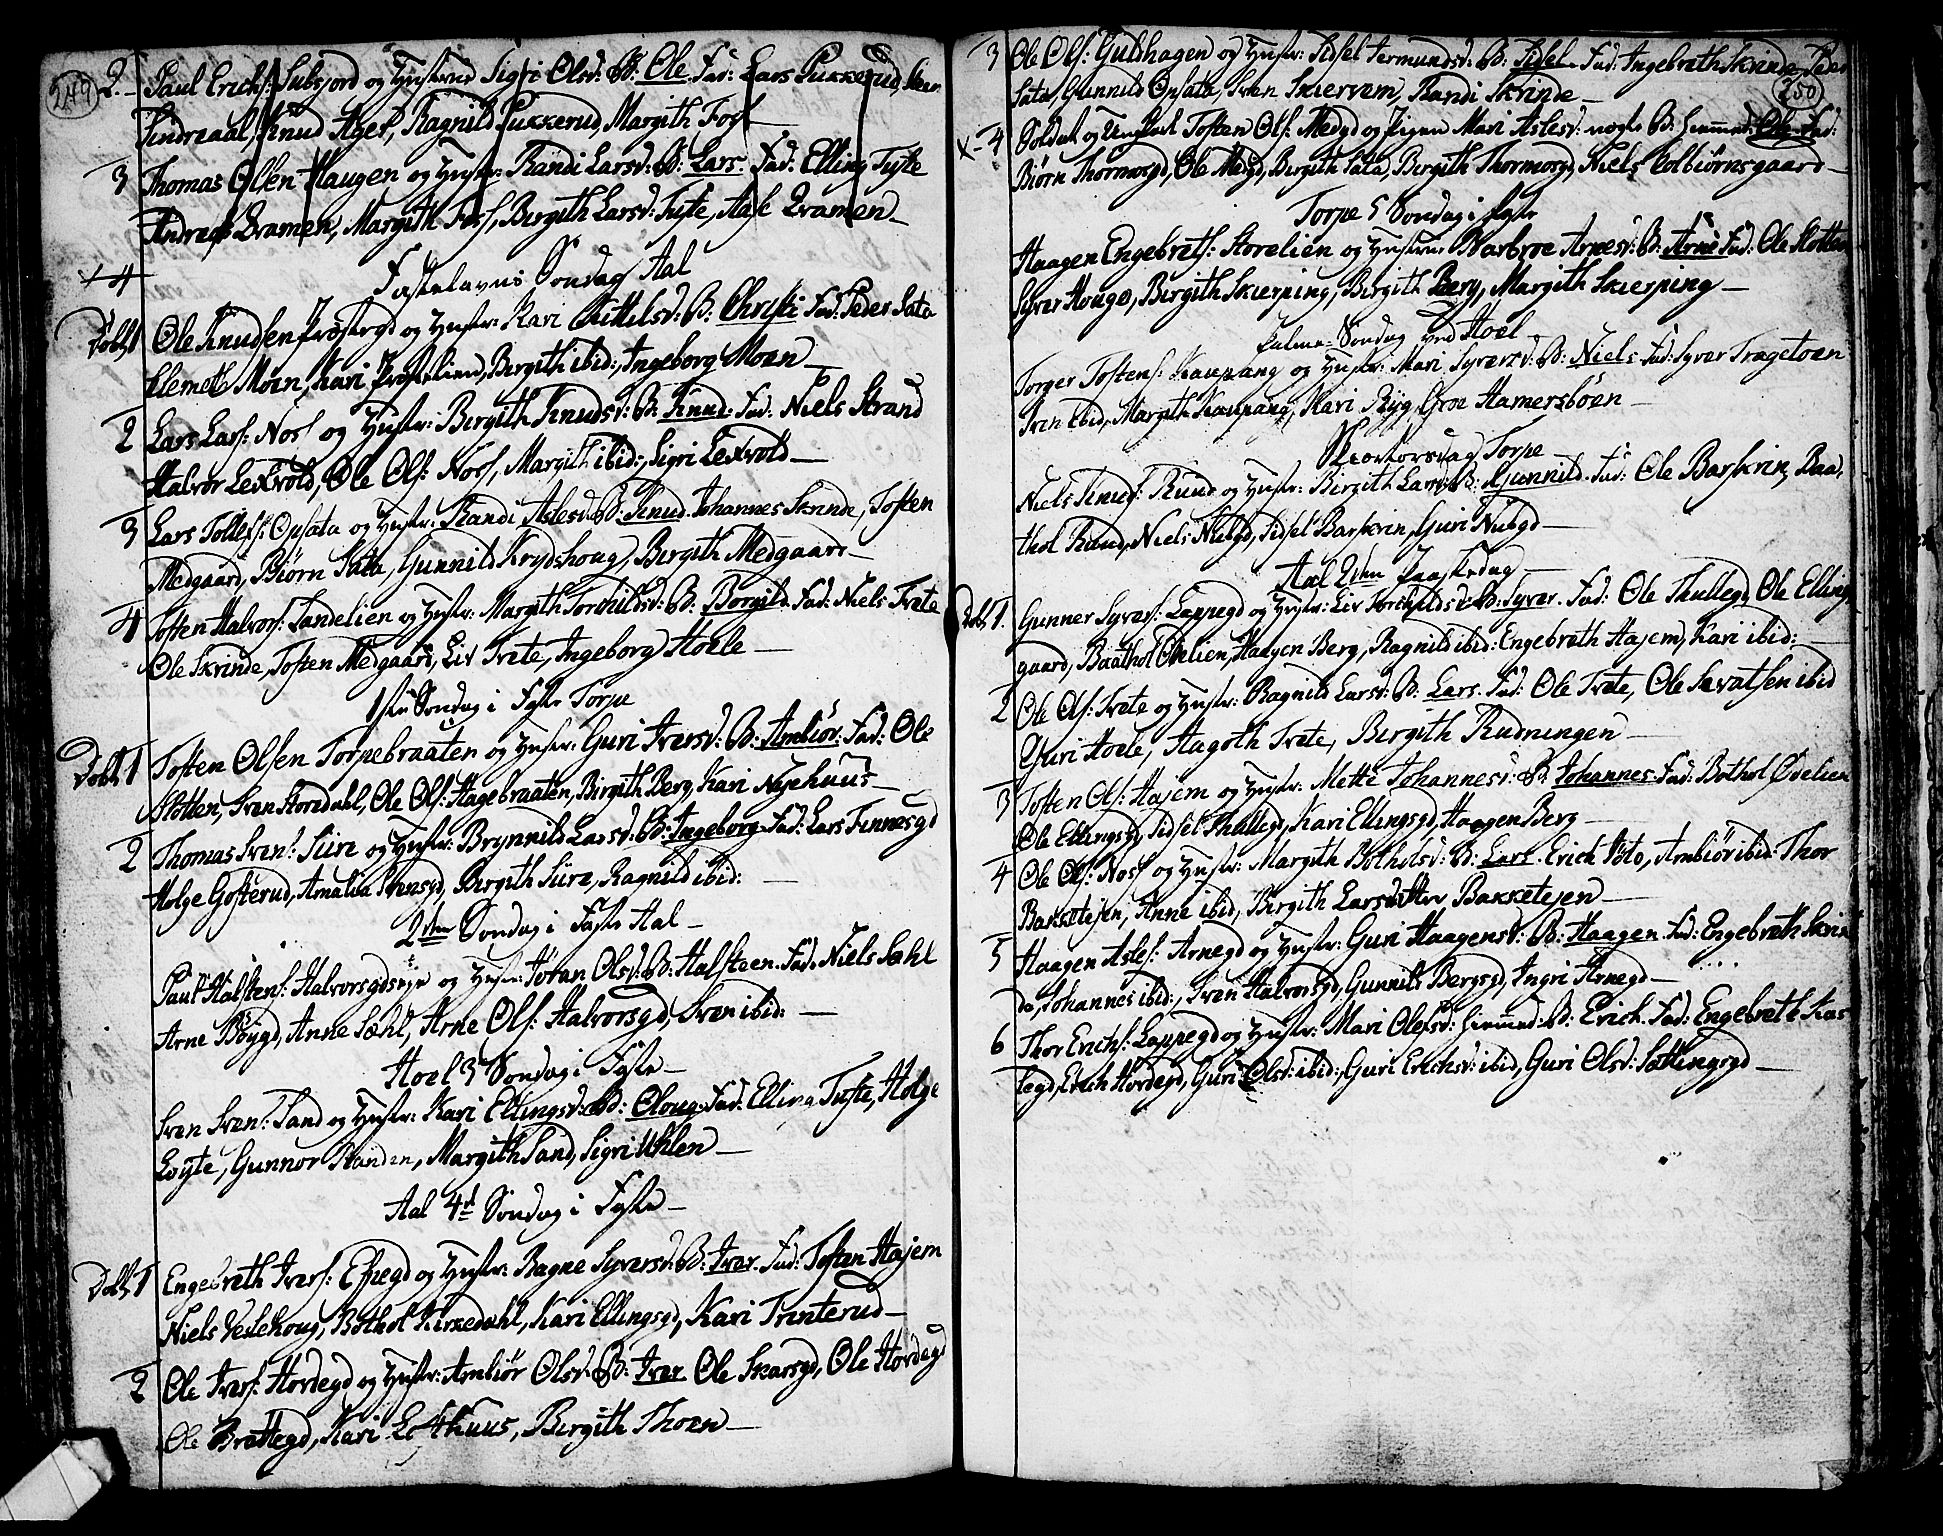 249
2. Paul Erichs: Subsjord og Hustrue Sigri Olsd: B: Ole. Fad: Lars Tukkerud, Steen
Sindreaal, Knud Ager, Ragnild Tukkerud, Margith Foss
3 Thomas Olsen Haugen og Hustr: Randi Larsd: B: Lars. Fad: Elling Tufte
Andreas Qvamen, Margith Foss, Birgith Larsd: Tufte, Aase Qvamen
+4
Fastelavns Søndag Aal
Døbt 1 Ole Knudsen Præstegd og Hustr: Kari Kittilsd: B: Christi Fad: Peder Sata
Clemeth Moen, Kari Præstelien, Birgith ibid:, Ingeborg Moen
2 Lars Lars: Noss og Hustr: Birgith Knudsd: B: Knud. Fad: Niels Strand
Halvor Lexvold, Ole Ols: Noss, Margith ibid:, Sigri Lexvold
3 Lars Tollefs: Opsata og Hustr: Randi Aslesd: B: Knud. Johannes Skrinde, Tosten
Medgaard, Biørn Sata, Gunnild Krydshoug, Birgith Medgaard
4 Tosten Halvors: Sandelien og Hustr: Margith Torchildsd: B: Borgild. Fad: Niels Trete
Ole Skrinde, Tosten Medgaard, Liv Trete, Ingeborg Hoele
1ste Søndag i Faste Torpe
Døbt 1 Tosten Olsen Torpebraaten og Hustr: Guri Iversd: B: Ambiør. Fad: Ole
Slotten, Sven Storedahl, Ole Ols: Hagebraaten, Birgith Berg, Kari Nyehuus
2 Thomas Svens: Siire og Hustr: Brynnild Larsd: B: Ingeborg. Fad: Lars Finnesgd
Holge Gosterud, Amalia Svensgd, Birgith Siire, Ragnild ibid:
2den Søndag i Faste Aal
Paul Halstens: Halvorsgdseje og Hustr: Jøran Olsd: B: Halsteen. Fad: Niels Sæhl
Arne Bøygd, Anne Sæhl, Arne Ols: Halvorsgd, Sven ibid:
Hoel 3 Søndag i Faste
Sven Svens: Sand og Hustr: Kari Ellingsd: B: Oloug. Fad: Elling Tufte, Holge
Løyte, Gunnor Standen, Margith Sand, Sigri Uhlen
Aal 4d Søndag i Faste
Døbt 1 Engebreth Ivers: Espegd og Hustr: Ragne Syversd: B: Iver. Fad: Tosten Hajem
Niels Veslehoug, Bothol Kirkedahl, Kari Ellingsgd, Kari Trinterud
2 Ole Ivers: Hordegd og Hustr: Ambiør Olsd: B: Iver Ole Skarsgd, Ole Hordegd
Ole Brattegd, Kari Lofthuus, Birgith Thoen
250
3 Ole Ols: Gulshagen og Hustr: Sidsel Germundsd: B: Sidsel. Fad: Ingebreth Skrinde, Peder
Sata, Gunnild Opsata, Sven Skiervem, Randi Skrinde
x-4 Soldat og Ungkarl Tosten Ols: Medgd og Pigen Mari Aslesd: B: Ole. Fad:
Biørn Thormosgd, Ole Medgd, Birgith Sata, Birgith Thormosgd, Niels Kolbiørnsgaard
Torpe 5 Søndag i Faste
Haagen Engebreths: Storelien og Hustrue Barbroe Arnesd: B: Arne Fad: Ole Slotten
Syver Hougo, Birgith Skierping, Birgith Berg, Margith Skierping
Palme-Søndag ved Hoel
Torger Tostens: Kaupang og Hustr: Mari Syversd: B: Niels Fad: Syver Tragetoen
Sven ibid, Margith Kaupang, Kari Ryg, Groe Hamersbøen
Skiertorsdag Torpe
Niels Knuds: Ruud og Hustr: Birgith Larsd: B: Gunnild. Fad: Ole Barskrin, Baa,
thol Ruud, Niels Nubgd, Sidsel Barskrin, Guri Nubgd
Aal 2den Paaskedag
Døbt 1. Gunner Syvers: Lappegd og Hustr: Liv Torchildsd: B: Syver. Fad: Ole Thullegd, Ole Elling
gaard, Baathol Øvelien, Haagen Berg, Ragnild ibid: Engebreth Hajem, Kari ibid:
2 Ole Ols: Trete og Hustr: Ragnild Larsd: B: Lars. Fad: Ole Trete, Ole Sevatsen ibid
Guri Hoele, Aagoth Trete, Birgith Rudningen
3 Tosten Ols: Hajem og Hustr: Mette Johannesd: B: Johannes. Fad: Bothol Øvelien
Ole Ellingsgd, Sidsel Thullegd, Kari Ellingsgd, Haagen Berg
4 Ole Ols: Noss og Hustr: Margith Botholsd: B: Lars. Erich Bøto, Ambiør ibid: Thor
Bakketejen, Anne ibid, Birgith Larsd Bakketejen
5 Haagen Asles: Arnegd og Hustr: Guri Haagensd: B: Haagen. Fad: Engebreth Skrin
de, Johannes ibid:, Sven Halvorsgd, Gunnild Bergsgd, Ingri Arnegd
6 Thor Erichs: Lappegd og Hustr: Mari Olefsd: B: Erich. Fad: Engebreth Kas
legd, Erich Hordegd, Guri Olsd: ibid:, Guri Erichsd: ibid, Guri Olsd: Sættingsgd